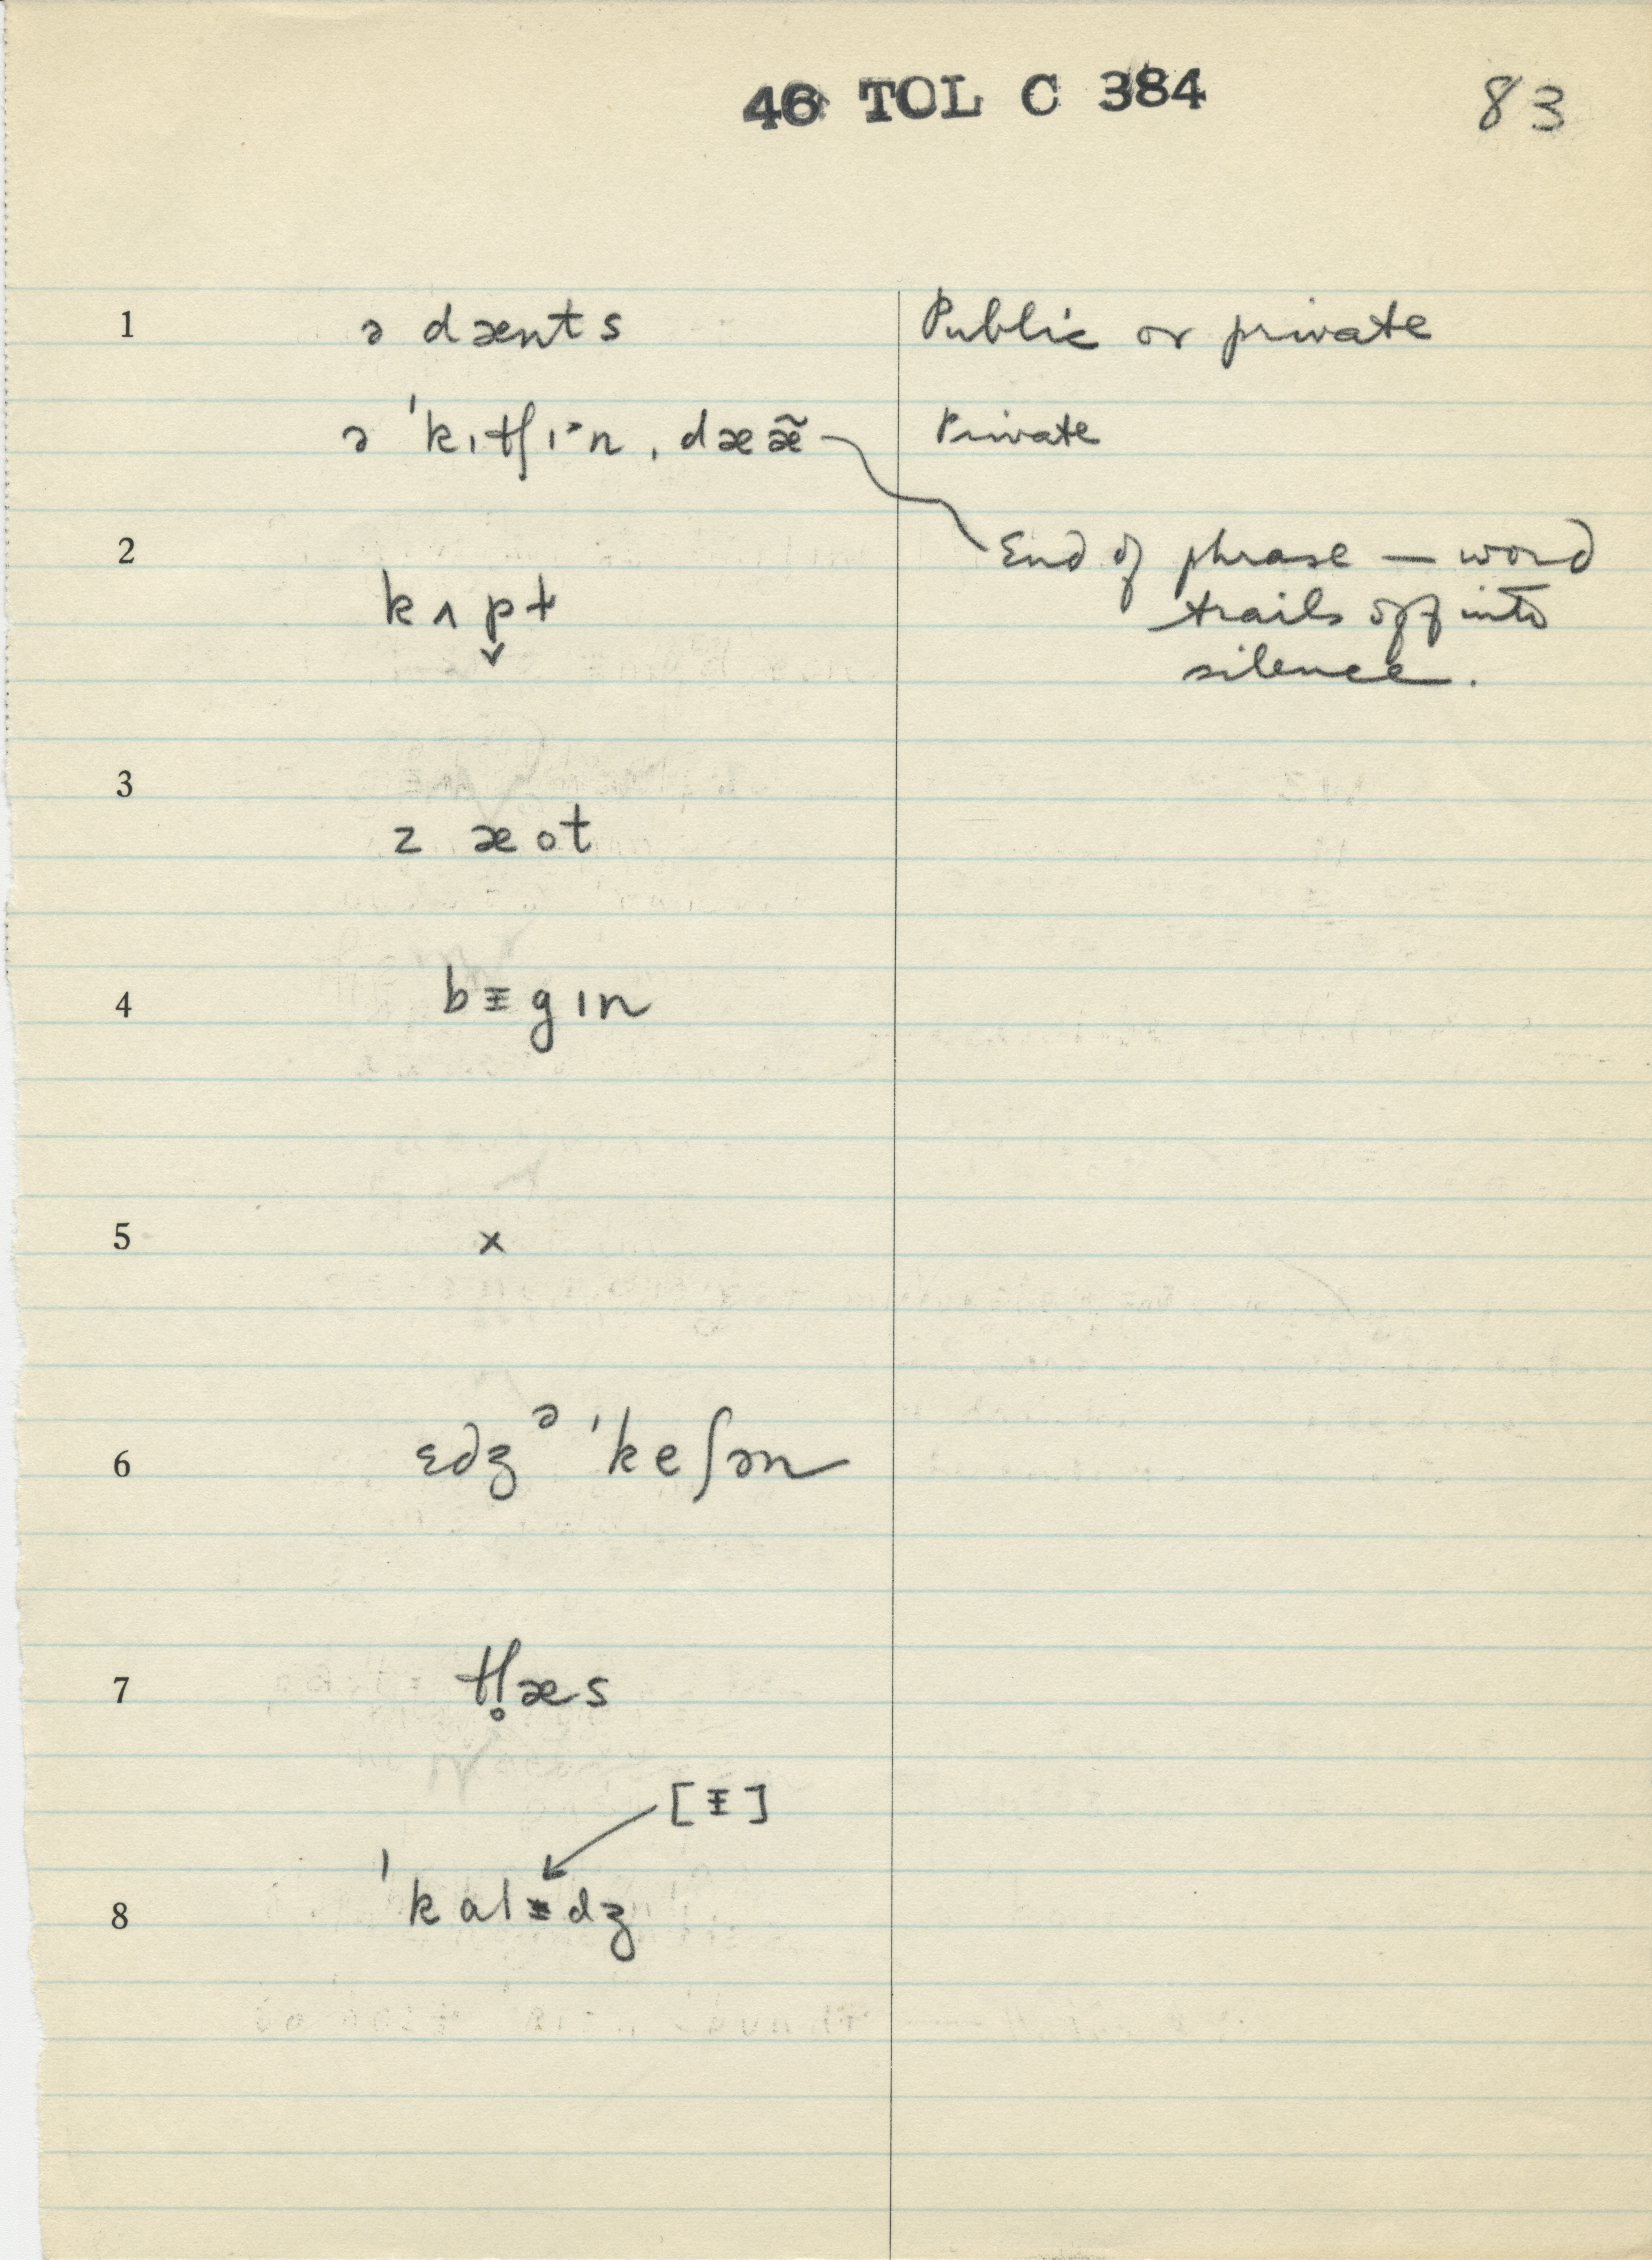 46 TOL C 384 83
1 ə dænts Public or private
ə ˈkɪtʃɪ˃n ˌdææ̃ Private
2 End of phrase — word
kʌp̬t trails off into
silence.
3
z æot
4 bᵻgɪn
5 x
6 ɛdʒᵊ ˈkeʃən
7 tl̥æs
[ᵻ]
8 ˈkalᵻdʒ